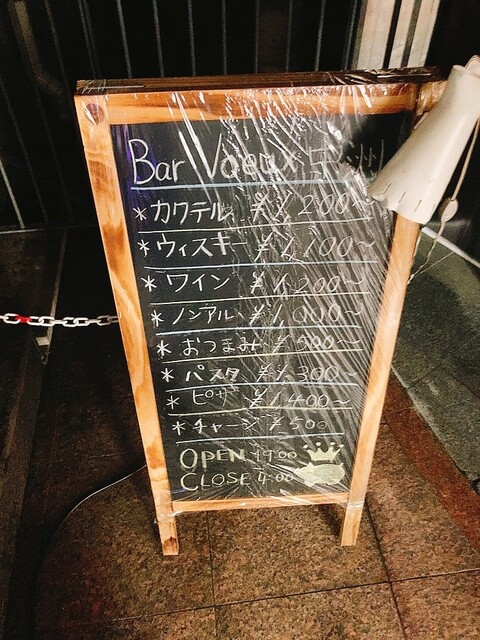 Bar Voeux 中洲
*カクテル ¥1,200~
*ウィスキー ¥1,100~
*ワイン ¥1,200~
*ノンアル ¥1,000~
*おつまみ ¥500~
*パスタ ¥1,300~
*ピザ ¥1,400~
*チャージ ¥500
OPEN 19:00
CLOSE 4:00